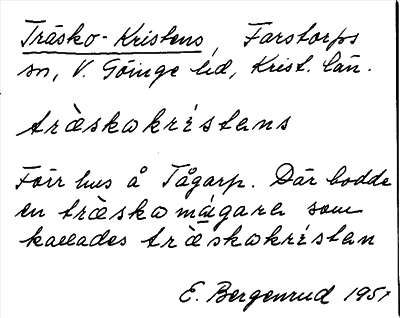 Träsko-Kristens, Farstorps
sn, V. Göinge hd, Krist. län.
träskakrístens
Förr hus å Tågarp. Där bodde
en träskamágare som
kallades träskakrístan
E. Bergenrud 1951